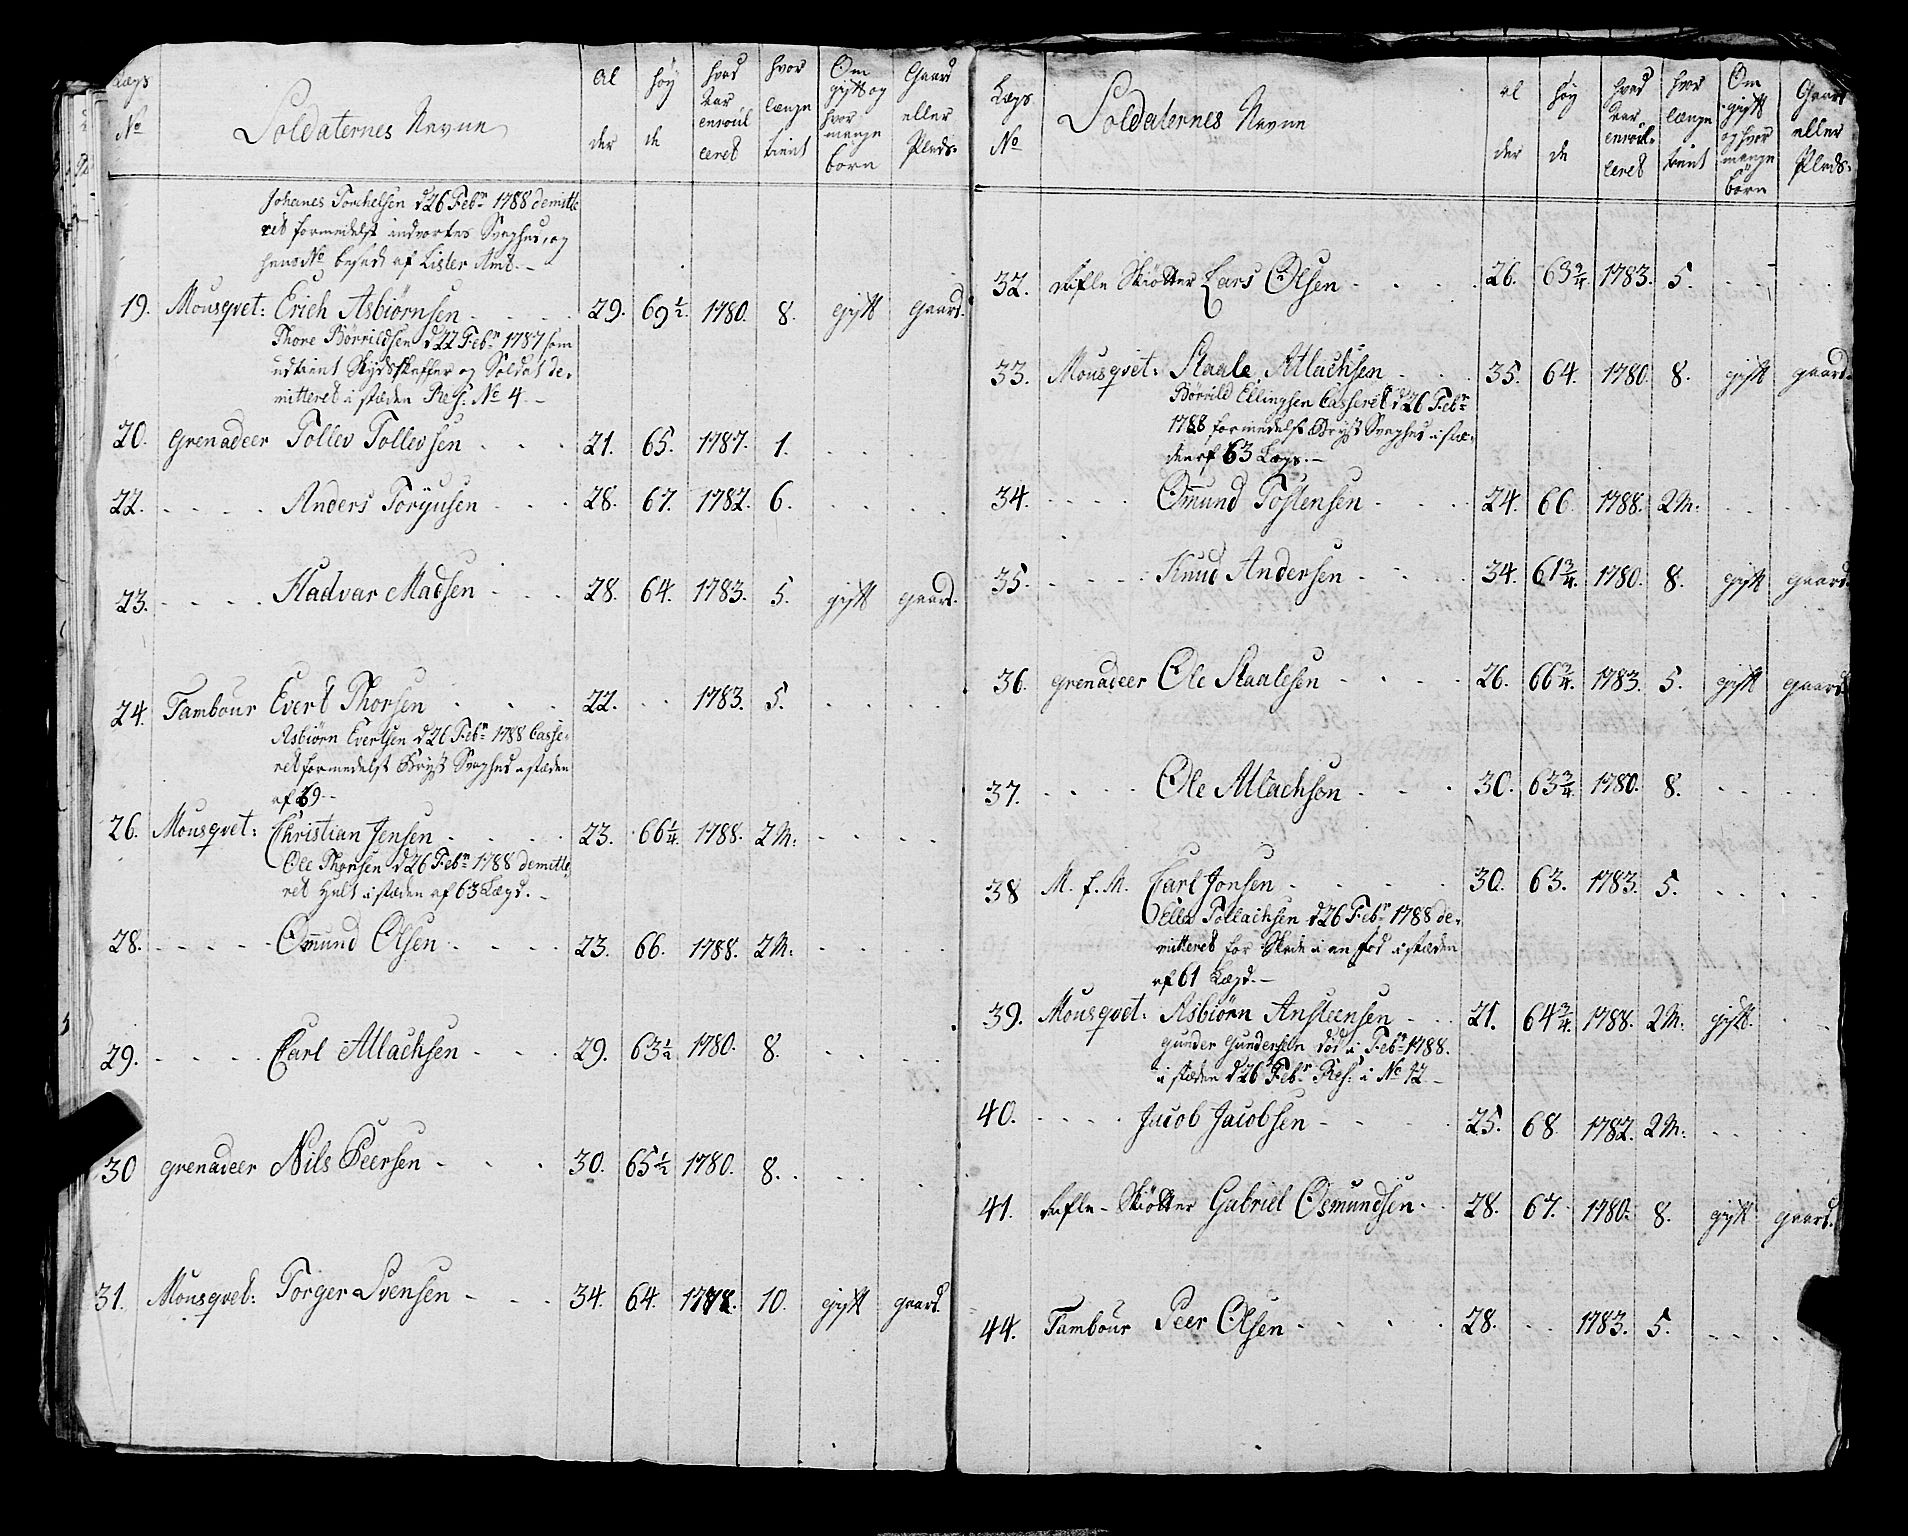 Lægs No | Soldaternes Nevne | Al der | høy de | hvad Aar enroul leret | hvor længe tient | Om gift og hvor mange børn | Gaard eller Plads.
Johanes Torchelsen d 26 Febr 1788 demitte
ret formedelst indvortes Svaghed, og
hans No besadt af Lister Amt. -
19. Mousqvet: Erich Asbiørnsen - 29. 69½. 1780. 8. gift gaard.
Thore Børrildsen d 22 Febr 1787 som
udtient Skydsskaffer og Soldat de-
mitteret i stæden Res: No 4. -
20. Grenadeer Tollev Tollevsen - 21. 65. 1787. 1.
22. - Anders Torgusen - 28. 67. 1782. 6.
23. - Hadvar Madsen - 28. 64. 1783. 5. gift gaard.
24. Tambour Evert Thorsen 22. 1783. 5.
Asbiørn Evertsen d 26 Febr 1788 Casse-
ret formedelst Bryst Svaghed i stæden
af 69. -
26. Mousqvet: Christian Jensen - 23. 66¼. 1788. 2 M:
Ole Thorsen d 26 Febr 1788 demitte-
ret Halt i stæden af 63 Lægd. -
28. - Omund Olsen - 23. 66. 1788. 2 M:
29. - Carl Atlachsen - 29. 63½ 1780. 8.
30 Grenadeer Nils Peersen - 30. 65½ 1780. 8.
31. Mousqvet: Torger Svensen - 34. 64. 1778. 10. gift gaard.
Lægs No | Soldaternes Nevne | al der | høy de | hvad Aar enroul- leret | hvor længe tient | Om gift og hvor mange børn | Gaard eller Plads.
32. Rifle Skiøtter Lars Olsen - 26. 63¾ 1783. 5.
33. Mousqvet: Staale Atlachsen - 35. 64. 1780. 8. gift gaard.
Børrild Ellingsen Casseret d 26 Febr
1788 formedelst Bryst Svaghed i stæ-
den af 63 Lægs. -
34. - Omund Tostensen - 24. 66. 1788. 2 M:
35. - Knud Andersen - 34. 61¾. 1780. 8. gift gaard.
36. Grenadeer Ole Staalesen - 26. 66¾. 1783. 5. gift gaard
37. - Ole Atlachsen - 30. 63¾. 1780. 8.
38 M. f. M. Carl Jonsen - 30. 63. 1783. 5.
Tollachsen d 26 Febr 1788 de-
mitteret for Skade i en fod i stæden
af 61 Lægd. -
39. Mousqvet: Asbiørn Ansteensen - 21. 64¾. 1788. 2 M: gift.
Gunder Gundersen død i Febr 1788.
i stæden d 26 Febr Res: i No 12 -
40. - Jacob Jacobsen - 25. 68. 1782. 2 M:
41. Rifle-Skiøtter Gabriel Osmundsen - 28. 67. 1780. 8. gift gaard.
44. Tambour Peer Olsen - 28. 1783. 5.